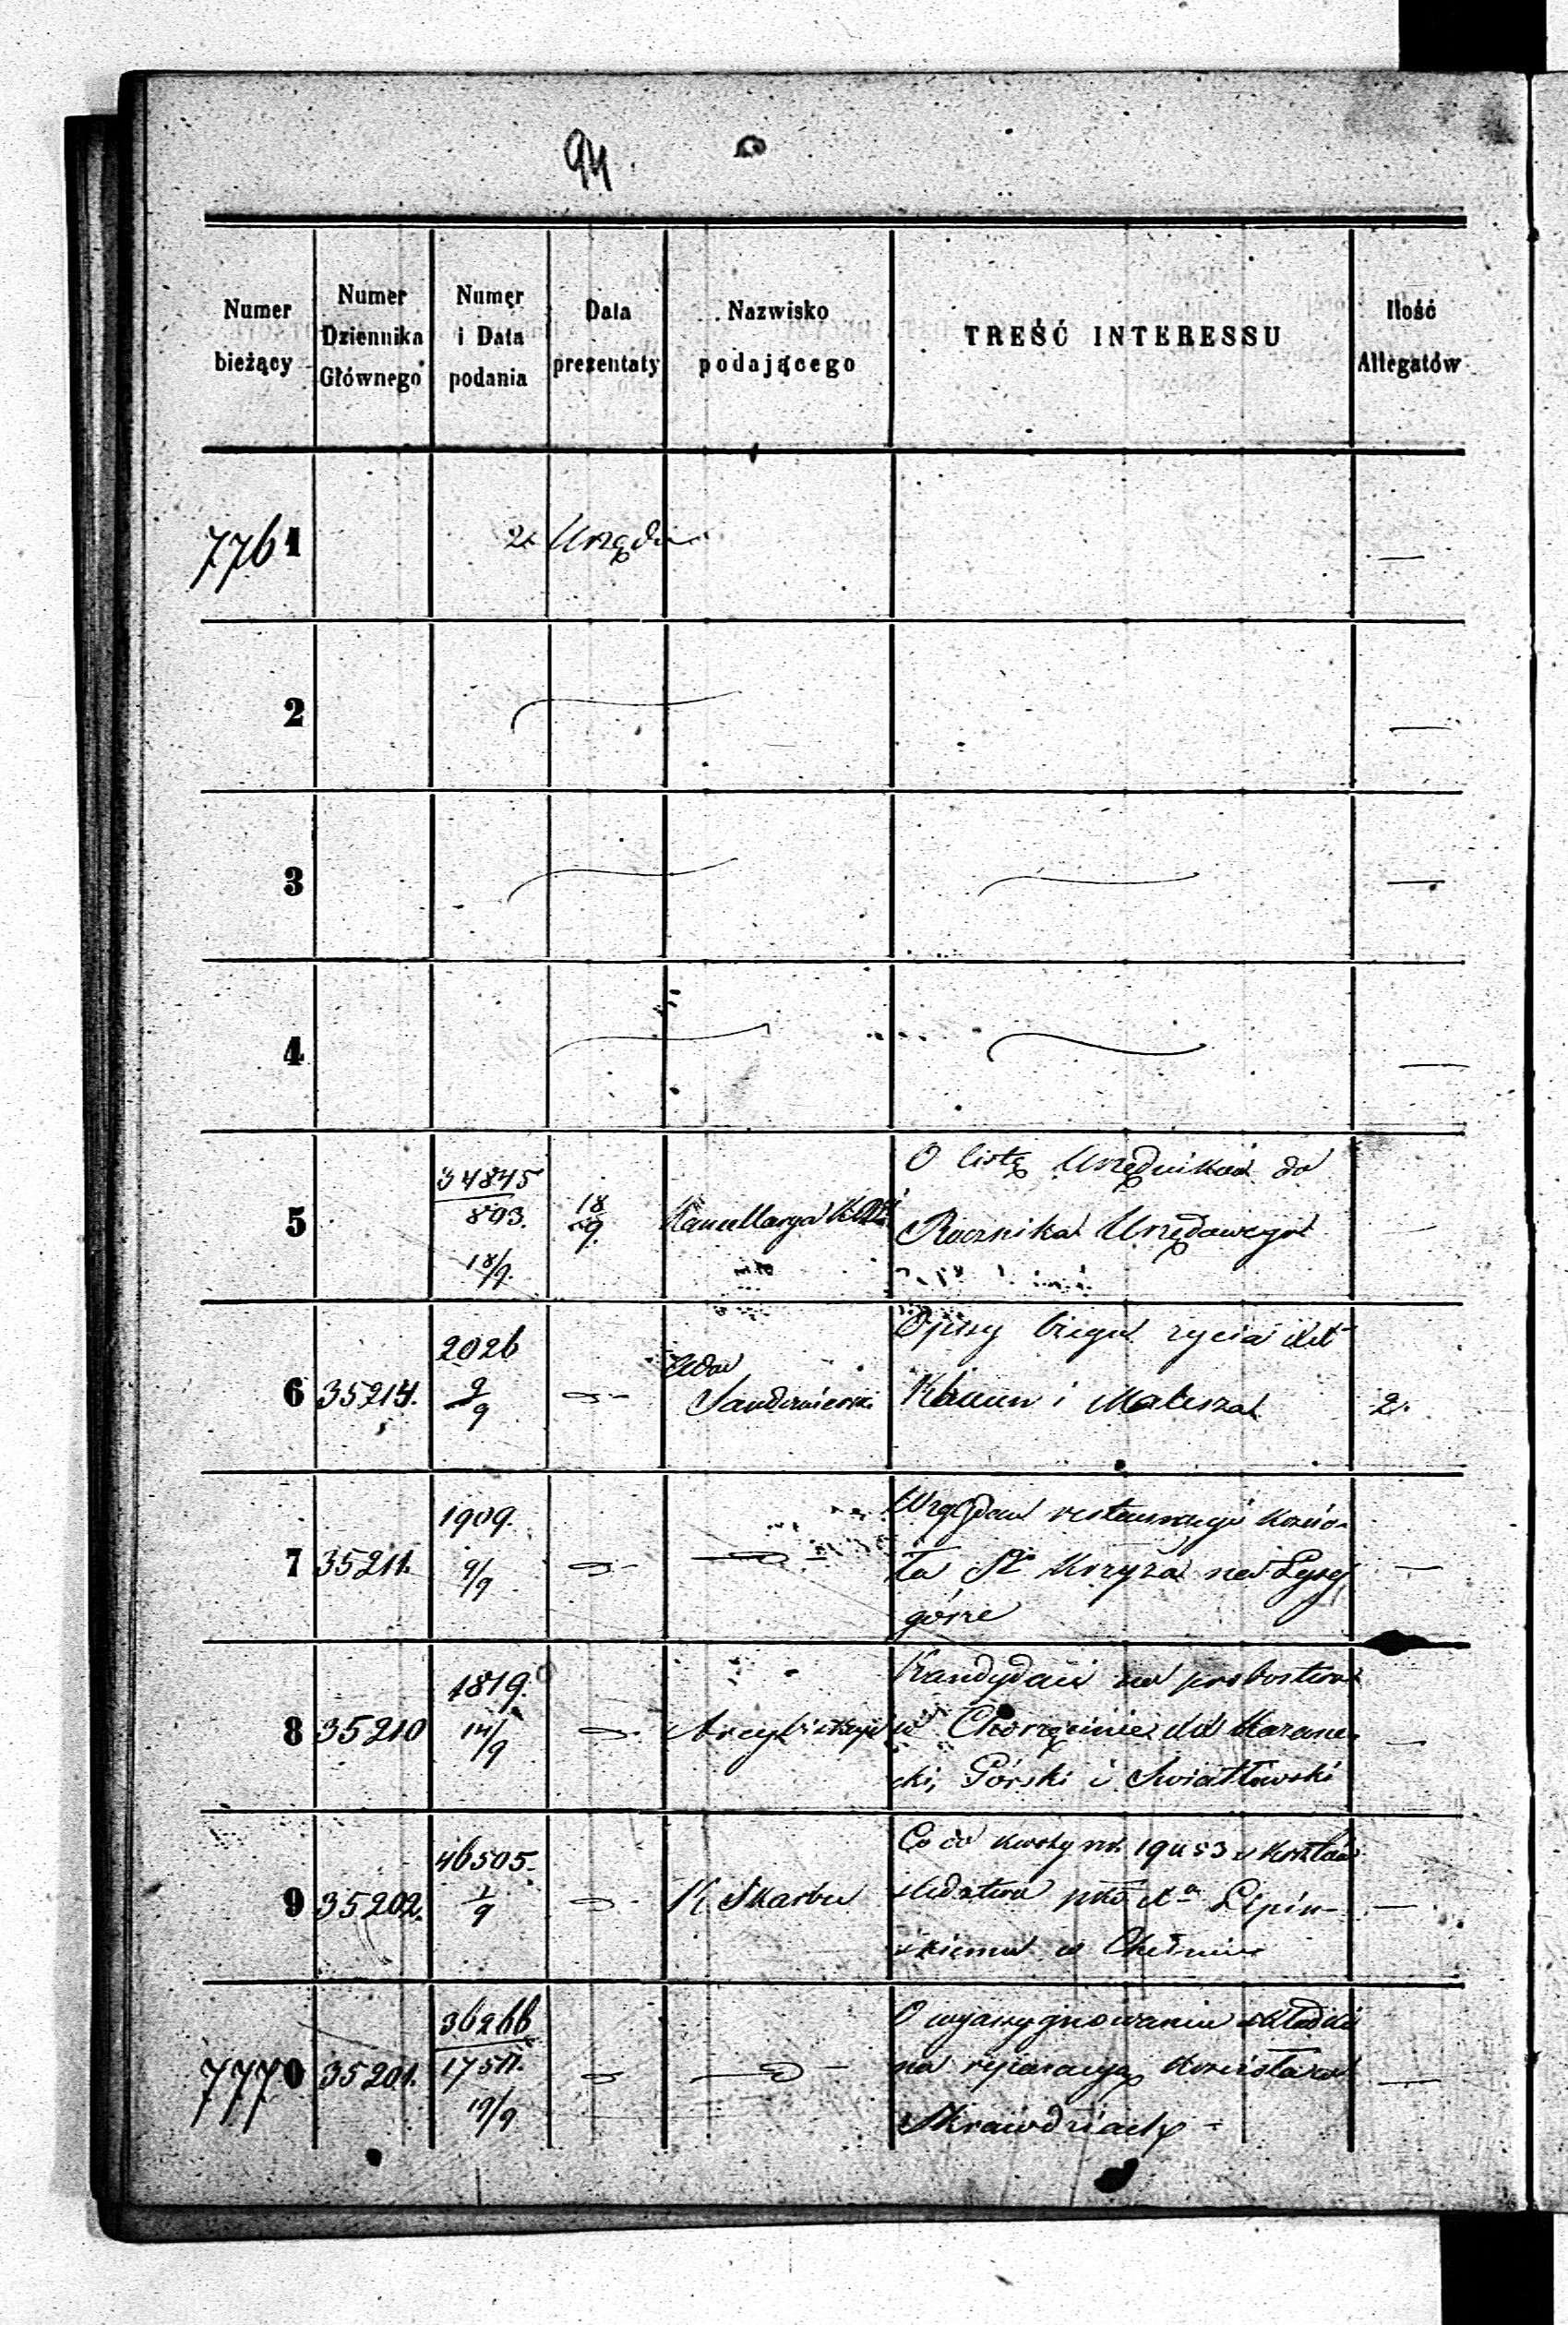 94.
Numer bieżący
Numer Dziennika Głównego
Numer i Data podania
Data prezentaty
Nazwisko podającego
TREŚĆ INTERESSU
Ilość Allegatów
7761 z Urzędu —
2 —
3 —
4 —
5
34845
893.
18/9.
18/9
Kancellarya
O listę Urzędników do
Rocznika Urzędowego
6 35214.
2026
9/9
Sandomierski
Opisy biegu życia
i Maleszar
2.
7 35211.
1909.
9/9
Względem restauracyi kościo-
ła Sgo Krzyża na Łysej
górze
—
8 35210
1819.
14/9
Arcybiskup
Kandydaci na probostwo
w Chorzęcinie
cki, Górski i Światławski
—
9 35202.
46505.
1/9
K Skarbu
Co do kwoty rs. 19 k 53
Lipin-
skiemu w
—
7770 35201.
36266
17511.
19/9
O wyassygnowanie składki
na reparacyą kościoła w
Skrawdziach
—